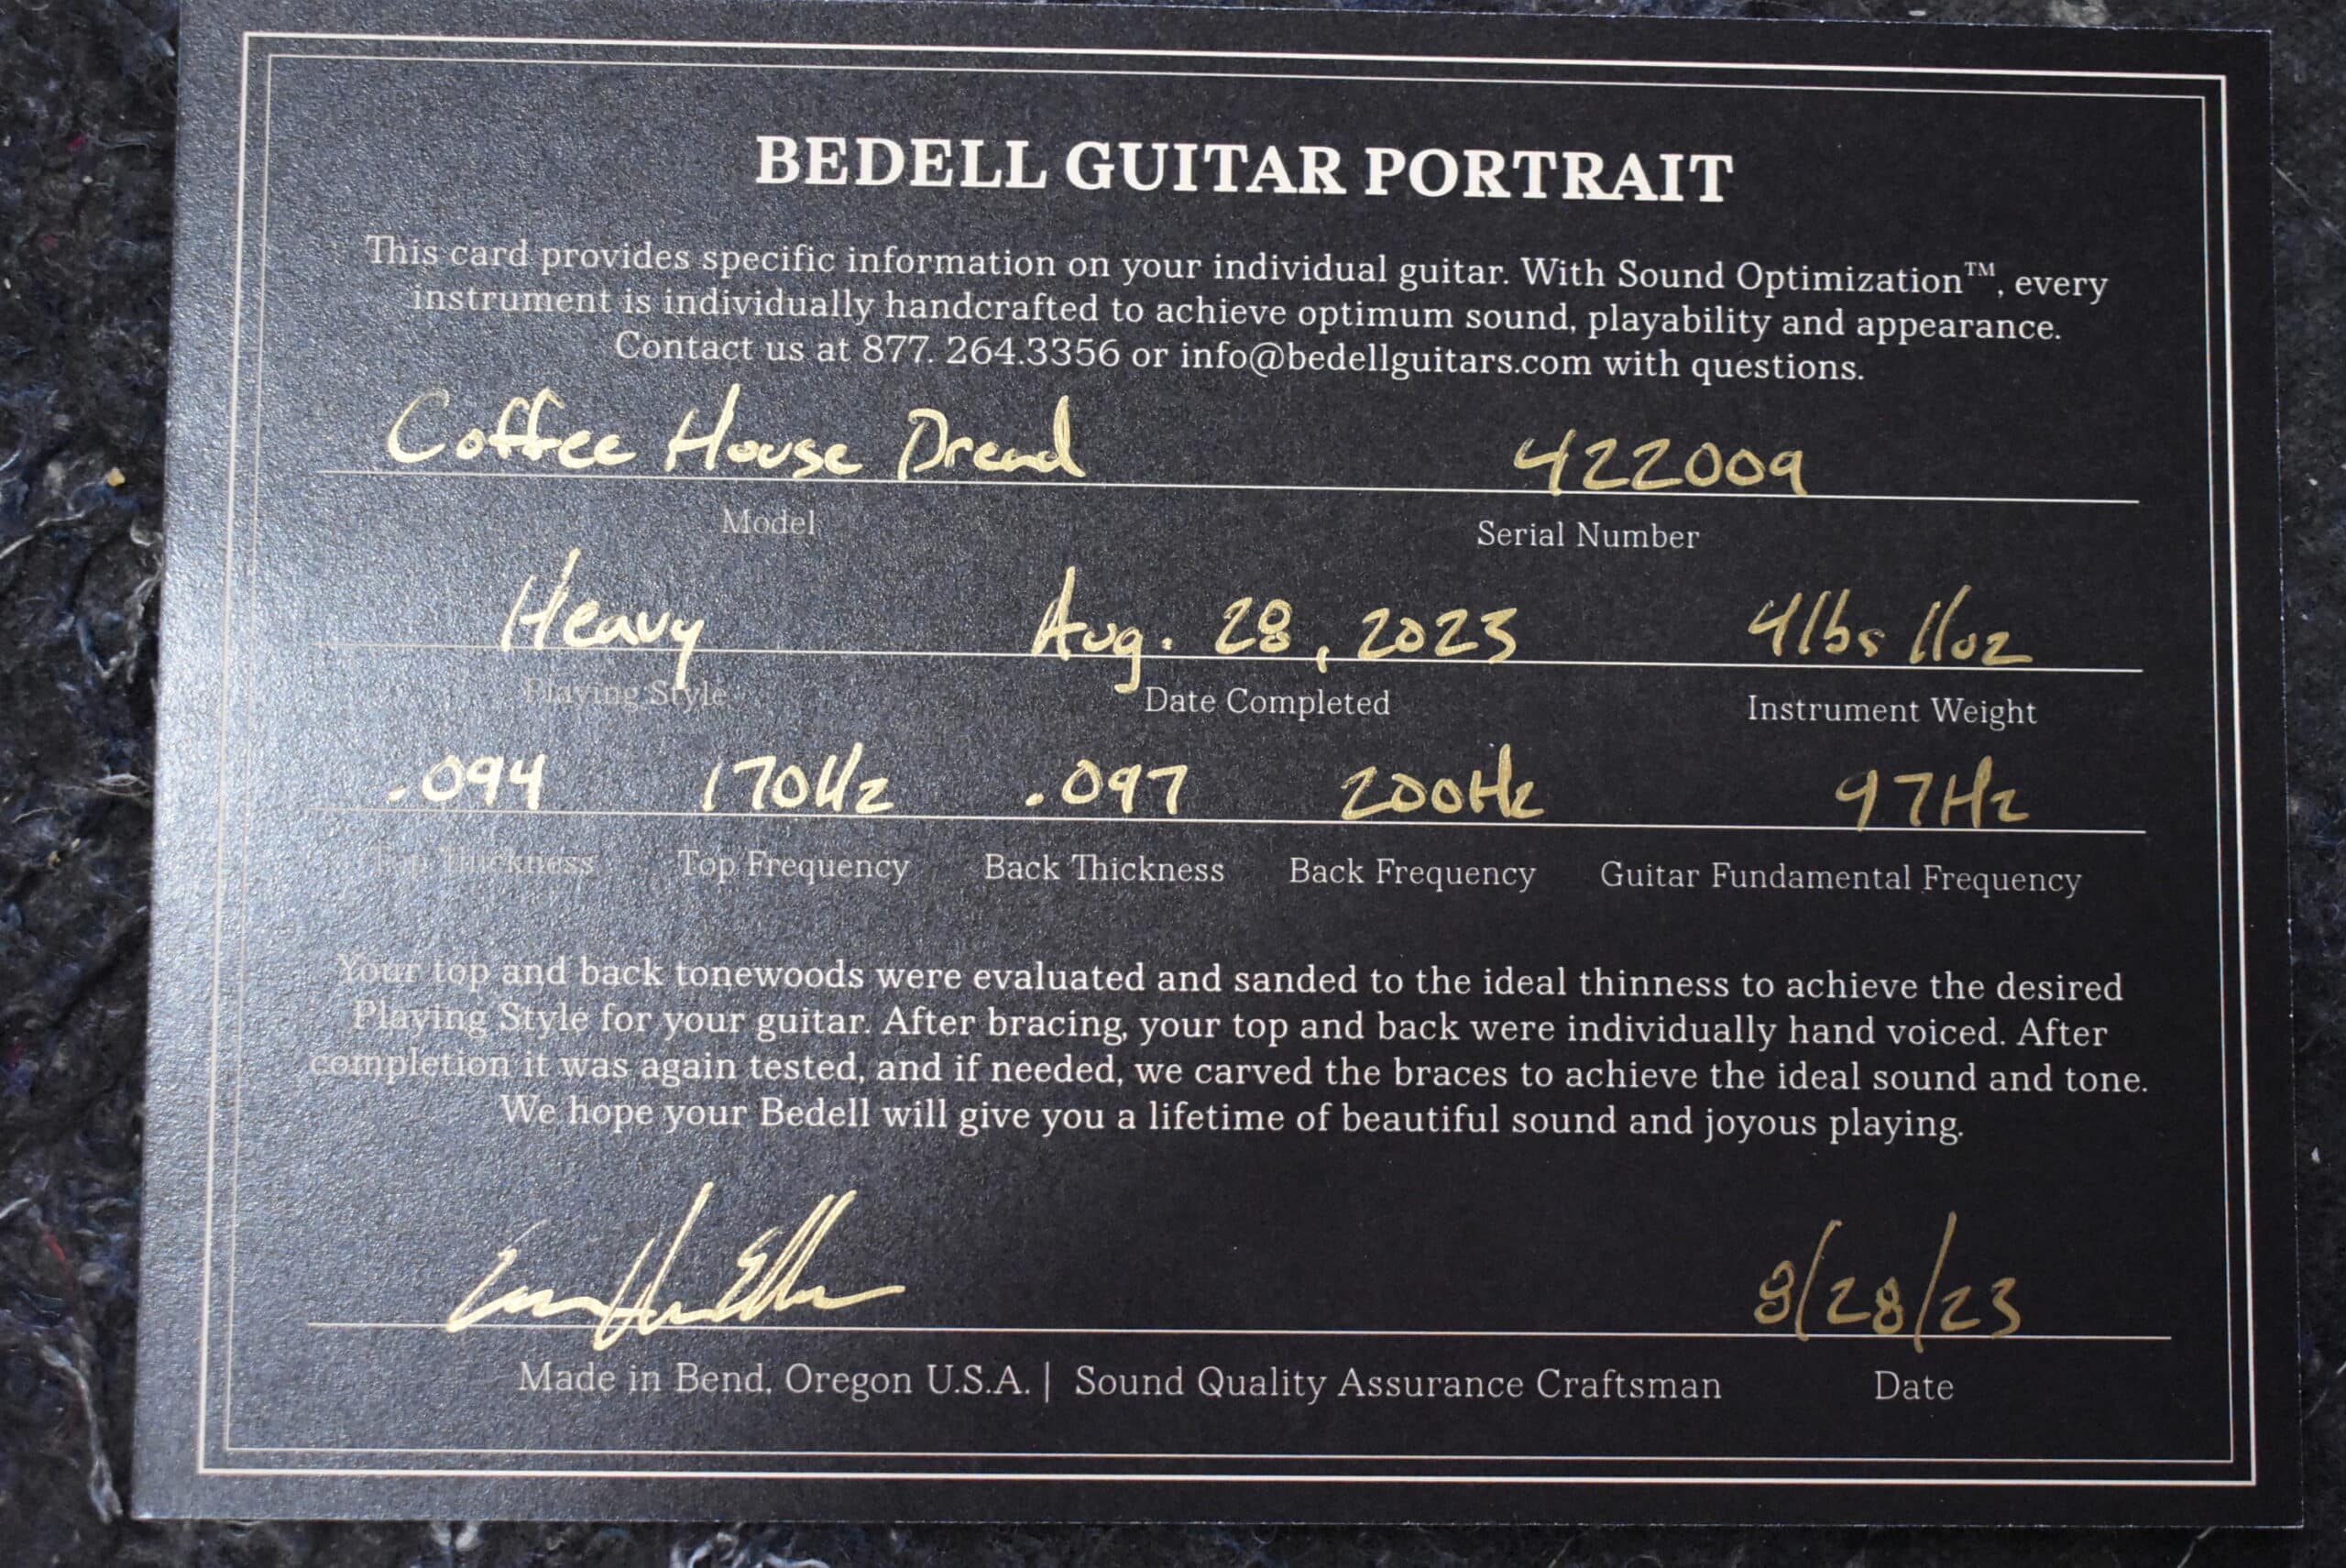 BEDELL GUITAR PORTRAIT
This card provides specific information on your individual guitar. With Sound Optimization™, every
instrument is individually handcrafted to achieve optimum sound, playability and appearance.
Contact us at 877. 264.3356 or info@bedellguitars.com with questions.
Coffee House Dread 422009
Model Serial Number
Heavy Aug. 28, 2023 4lbs 11oz
Playing Style Date Completed Instrument Weight
.094 170Hz .097 200Hz 97Hz
Top Thickness Top Frequency Back Thickness Back Frequency Guitar Fundamental Frequency
Your top and back tonewoods were evaluated and sanded to the ideal thinness to achieve the desired
Playing Style for your guitar. After bracing, your top and back were individually hand voiced. After
completion it was again tested, and if needed, we carved the braces to achieve the ideal sound and tone.
We hope your Bedell will give you a lifetime of beautiful sound and joyous playing.
8/28/23
Made in Bend, Oregon U.S.A. | Sound Quality Assurance Craftsman Date